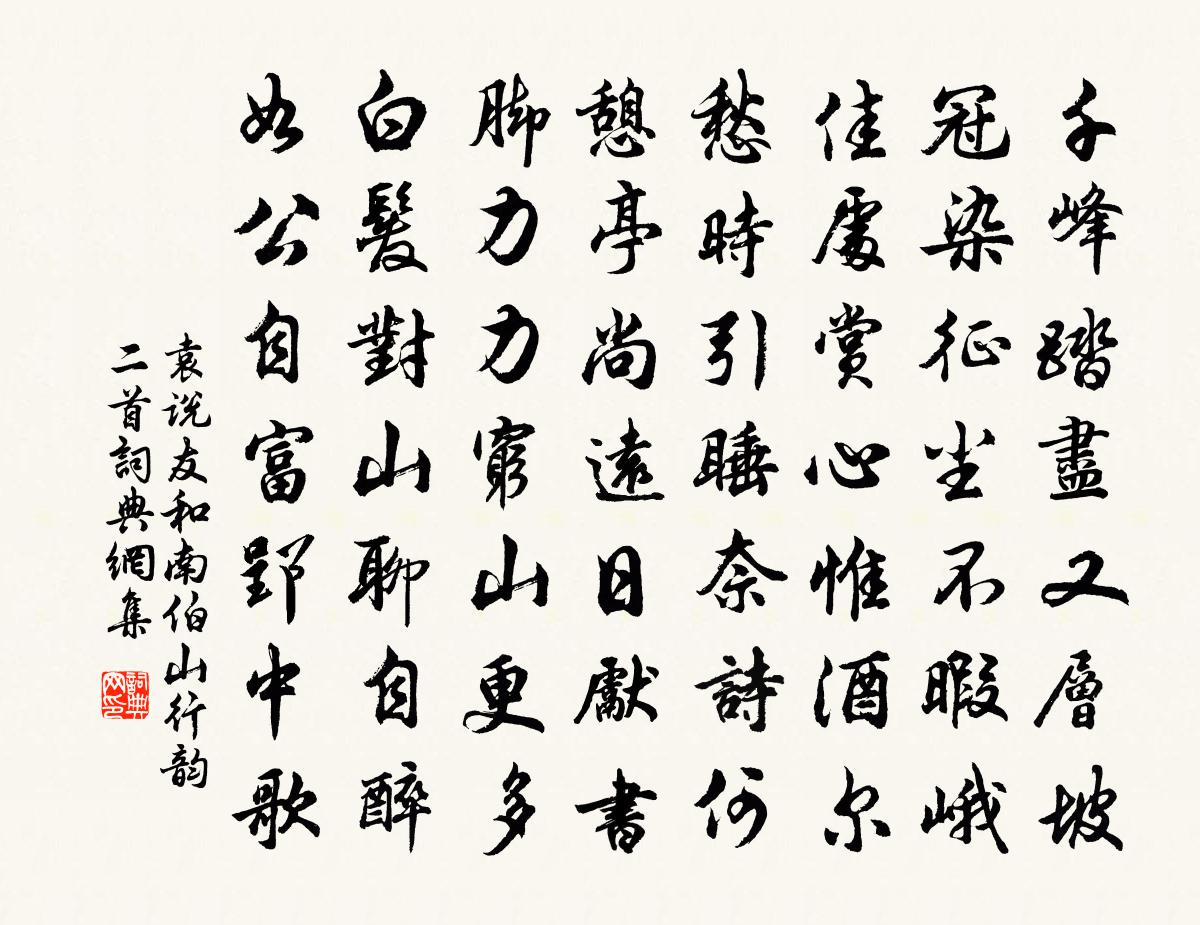 千峰踏盡又層坡
冠染征尘不暇峨
佳處賞心惟酒尔
愁時引睡奈詩何
憩亭尚遠日獻書
脚力力窮山更多
白髮對山聊自醉
如公自富郢中歌
袁说友和南伯山行韵
二首詞典網集
詞典网印